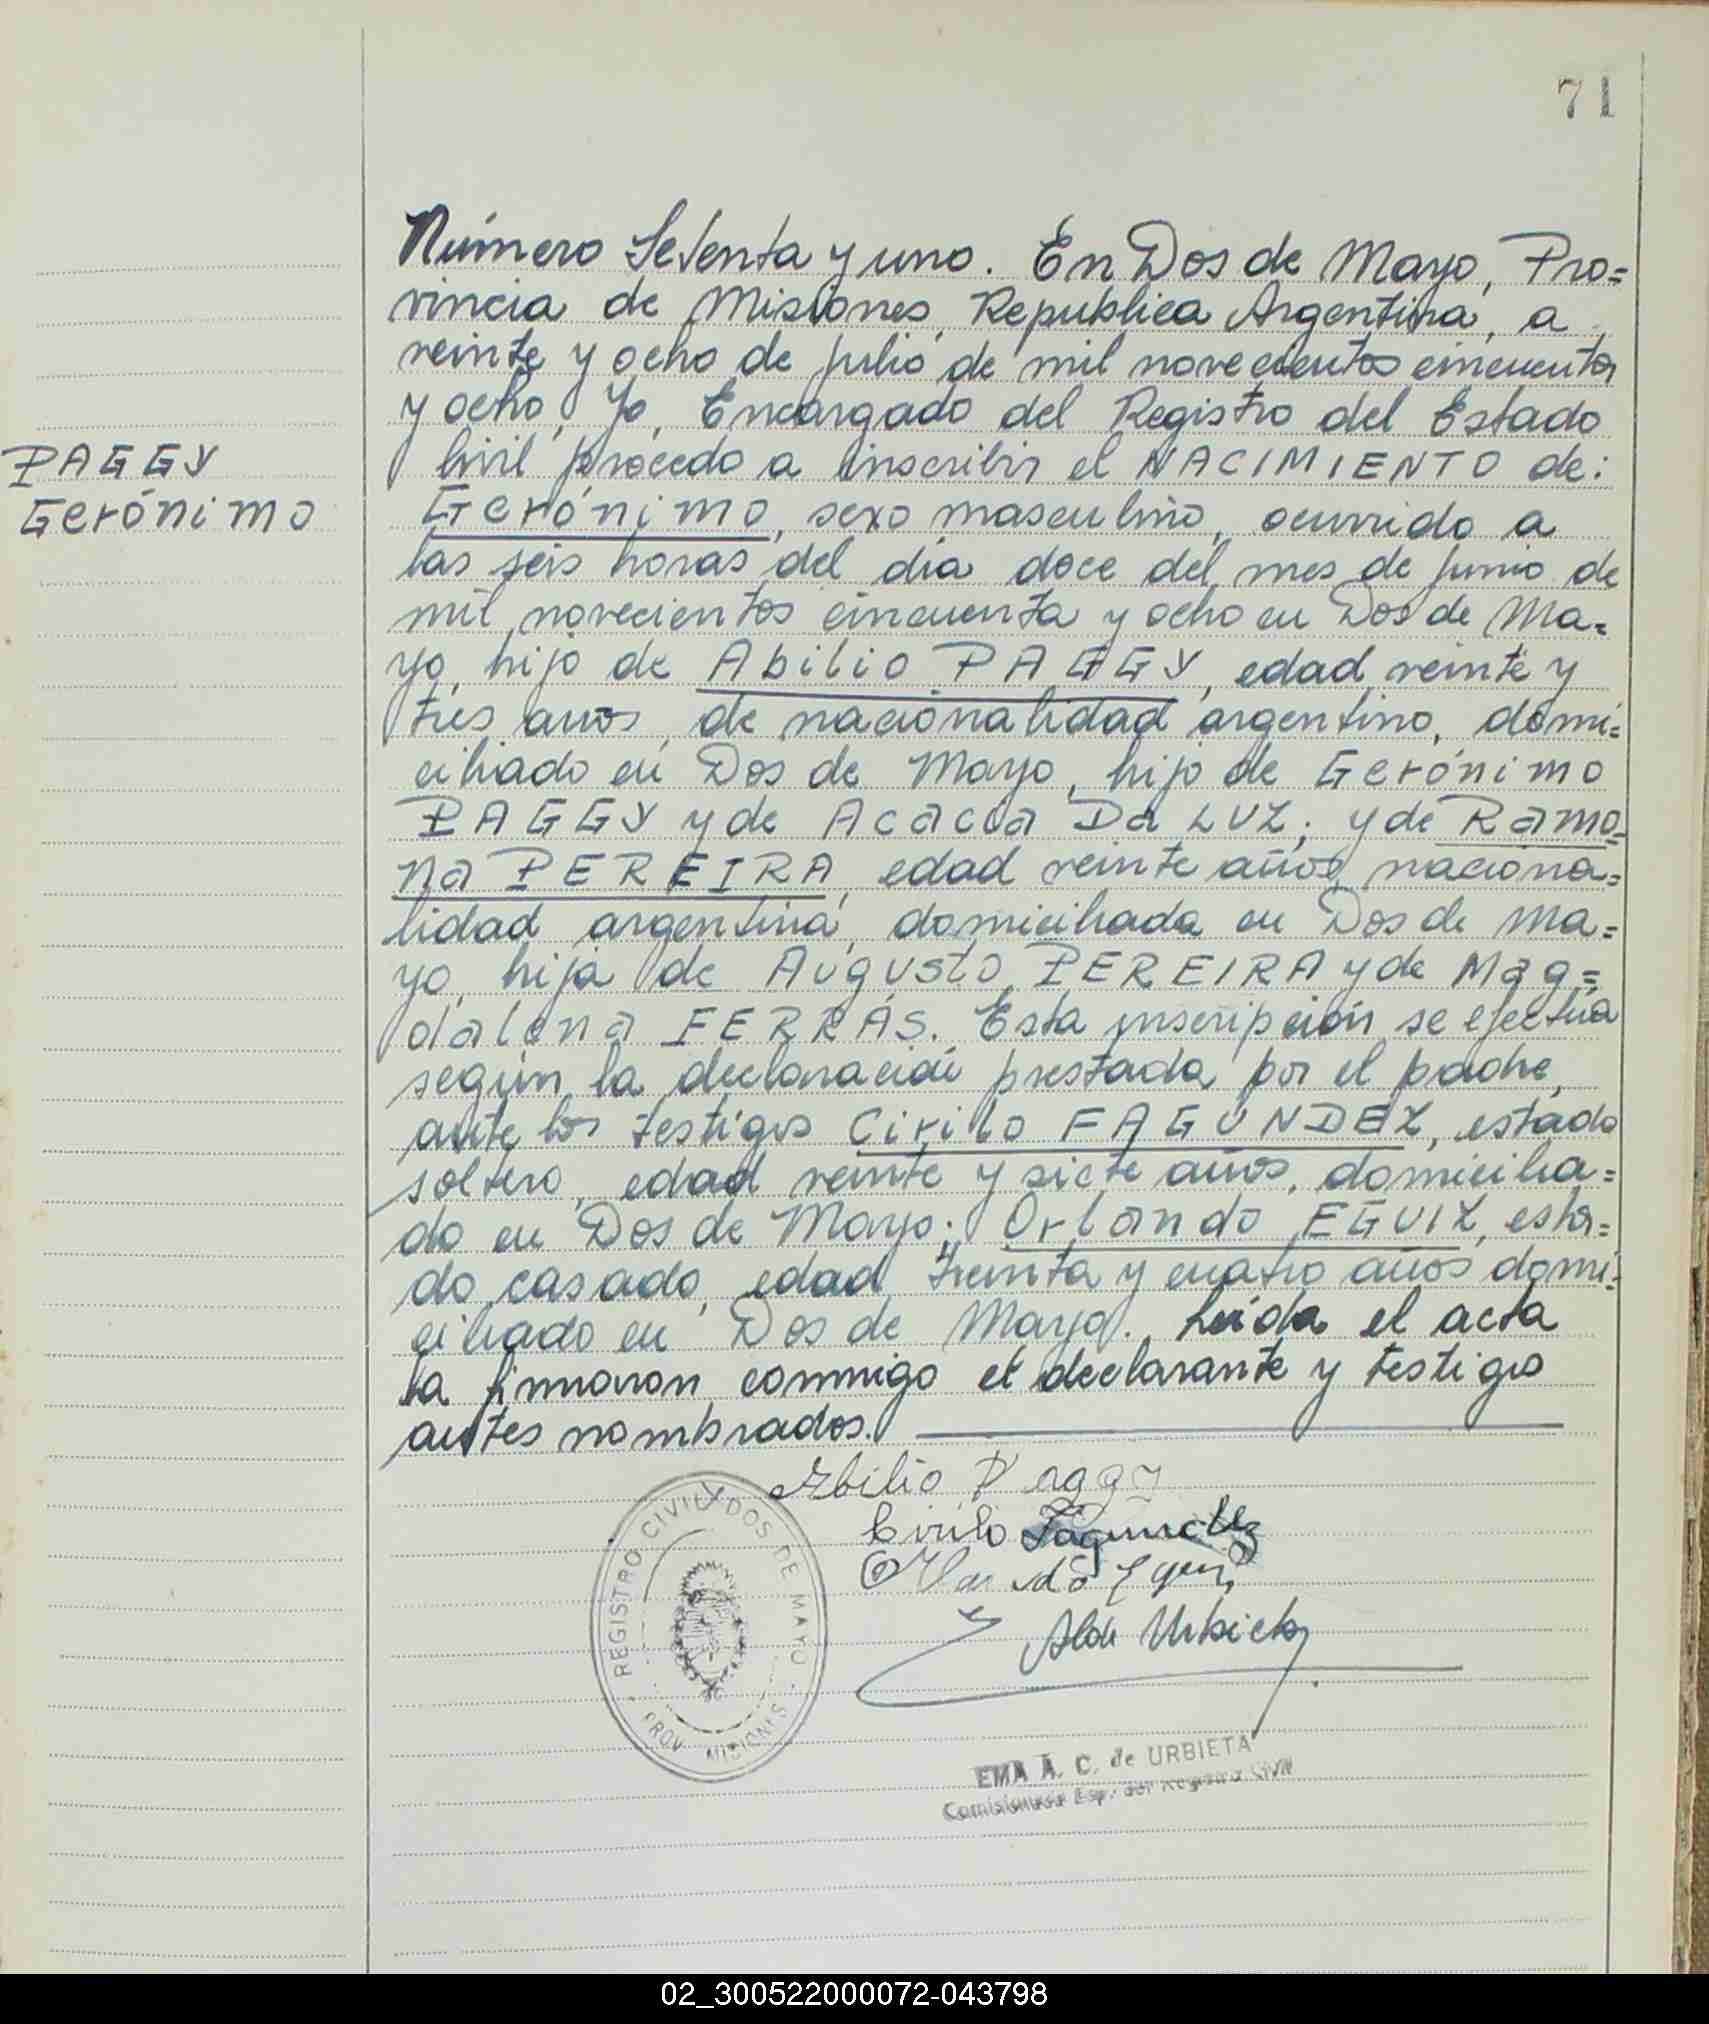 71
Número Setenta y uno. En Dos de Mayo, Pro=
vincia de Misiones, Republica Argentina, a
veinte y ocho de julio de mil novecientos cincuenta
y ocho, Yo, Encargado del Registro del Estado
Civil procedo a inscribir el NACIMIENTO de:
PAGGY
Gerónimo
Gerónimo, sexo masculino, ocurrido a
las seis horas del día doce del mes de junio de
mil novecientos cincuenta y ocho en Dos de Ma=
yo, hijo de Abilio PAGGY, edad veinte y
tres años, de nacionalidad argentino, domi=
ciliado en Dos de Mayo, hijo de Gerónimo
PAGGY y de Acacia Da LUZ; y de Ramo=
na PEREIRA, edad veinte años, naciona=
lidad argentina, domiciliada en Dos de Ma=
yo, hija de Augusto PEREIRA y de Mag=
dalena FERRÁS. Esta inscripción se efectúa
según la declaración prestada por el padre,
ante los testigos Cirilo FAGUNDEZ, estado
soltero, edad veinte y siete años, domicilia=
do en Dos de Mayo; Orlando EGUIZ, esta=
do casado, edad treinta y cuatro años domi=
ciliado en Dos de Mayo. Leída el acta
la firmaron conmigo el declarante y testigos
antes nombrados.
Abilio Paggy
Cirilo Fagundez
Orlando
Urbieta
REGISTRO CIVIL DOS DE MAYO
PROV. MISIONES
EMA A. C. de URBIETA
Comisionada Esp. del Registro Civil
02_300522000072-043798